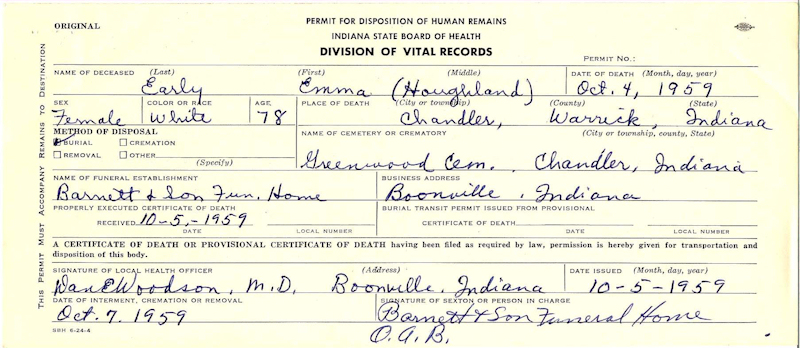 ORIGINAL
PERMIT FOR DISPOSITION OF HUMAN REMAINS
INDIANA STATE BOARD OF HEALTH
DIVISION OF VITAL RECORDS
PERMIT NO.:
NAME OF DECEASED (Last) (First) (Middle) DATE OF DEATH (Month, day, year)
Early Emma (Houghland) Oct. 4, 1959
SEX COLOR OR RACE AGE PLACE OF DEATH (City or township) (County) (State)
Female White 78 Chandler, Warrick, Indiana
METHOD OF DISPOSAL NAME OF CEMETERY OR CREMATORY (City or township, county, State)
BURIAL CREMATION
REMOVAL OTHER
(Specify) Greenwood Cem. Chandler, Indiana
NAME OF FUNERAL ESTABLISHMENT BUSINESS ADDRESS
Barnett & Son Fun. Home Boonville, Indiana
PROPERLY EXECUTED CERTIFICATE OF DEATH BURIAL TRANSIT PERMIT ISSUED FROM PROVISIONAL
RECEIVED 10-5,-1959 CERTIFICATE OF DEATH
DATE LOCAL NUMBER DATE LOCAL NUMBER
A CERTIFICATE OF DEATH OR PROVISIONAL CERTIFICATE OF DEATH having been filed as required by law, permission is hereby given for transportation and
disposition of this body.
SIGNATURE OF LOCAL HEALTH OFFICER (Address) DATE ISSUED (Month, day, year)
Dan E Woodson, M.D. Boonville, Indiana 10-5-1959
DATE OF INTERMENT, CREMATION OR REMOVAL SIGNATURE OF SEXTON OR PERSON IN CHARGE
Oct. 7. 1959 Barnett & Son Funeral Home
O.A.B.
SBH 6-24-4
THIS PERMIT MUST ACCOMPANY REMAINS TO DESTINATION